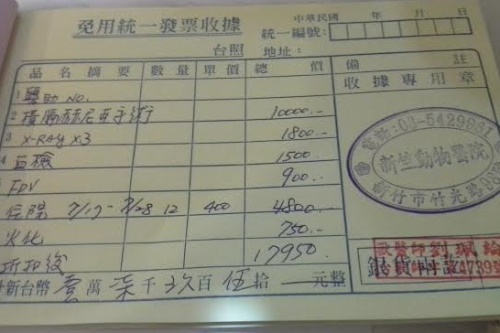 免用統一發票收據
中華民國 年 月 日
統一編號:
台照 地址:
品名摘要 數量 單價 總價 備註
收據專用章
1 NO.
2 橫膈赫尼亞手術 10000.-
3 X-RAY x3 1800.-
4 血檢 1500
FPV 900.-
住院 7/17-7/28 12 400 4800.-
火化 750.-
折扣後 17950
新台幣 壹萬柒千 百伍拾 元整
電話:03-5429931
新竺動物醫院
新竹市竹光路
獸醫師劉珮
銀貨兩訖